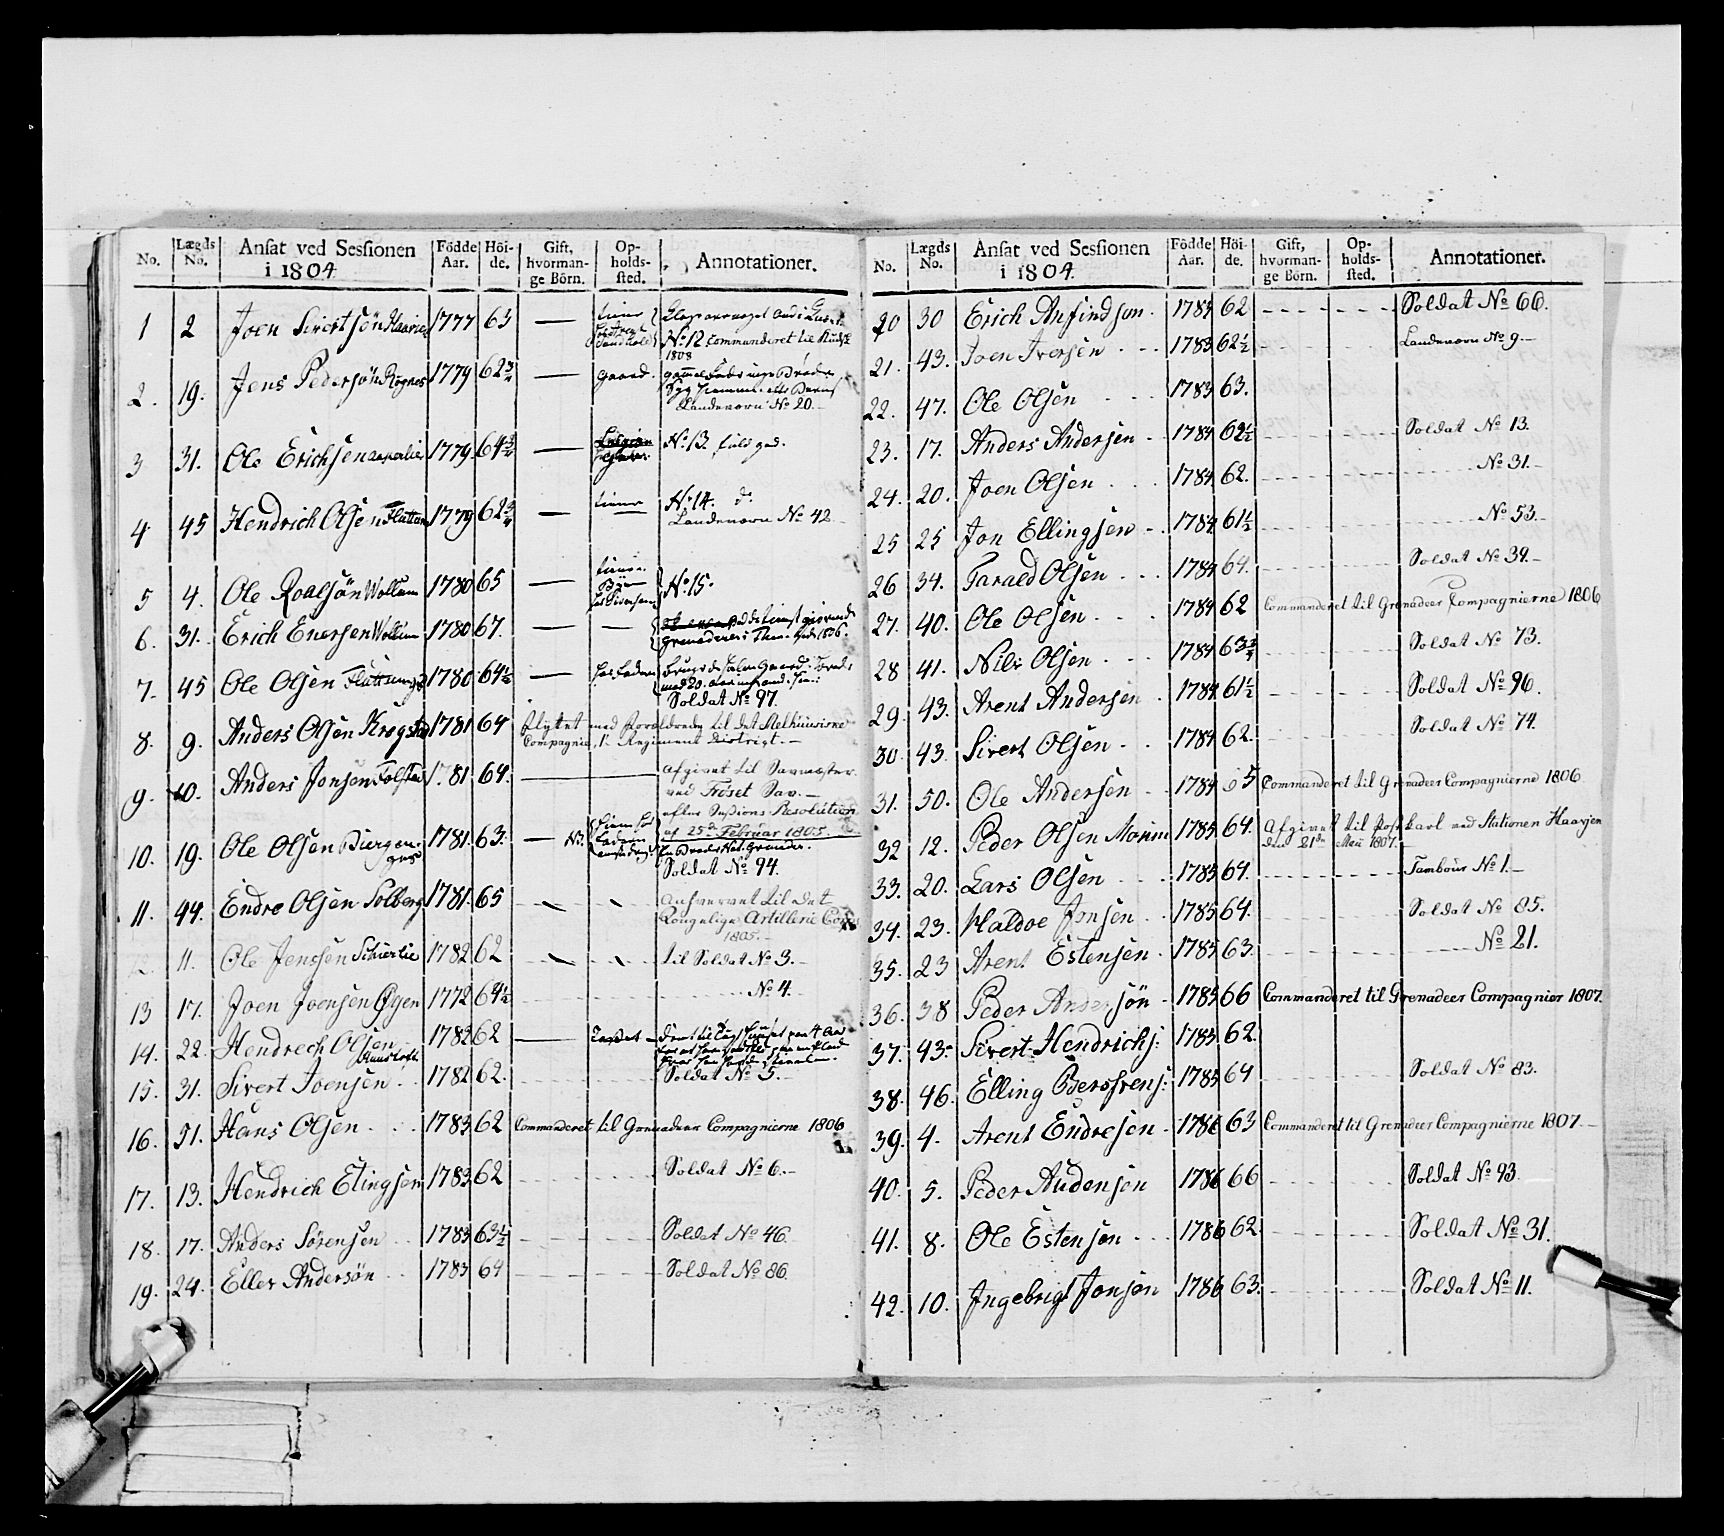 No. Lægds No. Ansat ved Sessionen i 1804 Födde Aar. Höi-de. Gift, hvorman-ge Börn. Op-holds-sted. Annotationer.
1 2 Joen Sivertsön 1777 63 — tiener
No 12 Commanderet til
1808
2. 19. Jens Pedersön Rognes 1779 62 3/4 — gaard.
Landeværn No 20.
3 31. Ole Erichsen 1779 64 3/4 — No 13.
4 45 Hendrich Olsen Flatten 1779 62 3/4 — tiener No 14. do
Landeværn No 42
5 4. Ole Roalsön Wollum 1780 65 — No 15.
6. 31. Erich Enersen Wollum 1780 67. — —
7. 45 Ole Olsen 1780 64 1/2 —
Soldat No 97.
8. 9. Anders Olsen Krogstad 1781 64 flytet med Forældrene til det
Compagnie, 1te Regiments District.
9. 10. Anders Jonsen 1781 64. — afgivet til Savmester
ved Foset Sav.
efter Sessions Resolution
af 25de Februar 1805.
10. 19. Ole Olsen 1781. 63. —
Soldat No 94.
11. 44. Endre Olsen Solberg 1781. 65 til det
Kongelige Artillerie Corps
1805.
12. 11. Ole Jenssen 1782 62 til Soldat No 3.
13 17. Joen Joensen 1772 64 1/2 No 4.
14. 22. Hendrech Olsen 1782 62 —
15. 31. Sivert Joensen 1782 62. Soldat No 5.
16. 51. Hans Olsen 1783 62 Commanderet til Grenadeer Compagnierne 1806
17. 13. Hendrich Elingsen 1783 62 Soldat No 6.
18. 17. Anders Sörensen 1783 63 1/2 Soldat No 46.
19. 24. Eller Andersön 1783 64 Soldat No 86.
No. Lægds No. Ansat ved Sessionen i 1804. Födde Aar. Höi-de. Gift, hvorman-ge Börn. Op-holds-sted. Annotationer.
20 30 Erich Anfindsen 1784 62 Soldat No 66.
21. 43. Joen Iversen 1783 62 1/2 Landeværn No 9.
22. 47. Ole Olsen 1783 63.
23. 17. Anders Andersen 1784 62 1/2 Soldat No 13.
24. 20. Joen Olsen 1784 62. No 31.
25 25 Jon Ellingsen 1784 61 1/2 No 53.
26 34. Tarald Olsen 1784 64. Soldat No 34.
27. 40. Ole Olsen 1784 62 Commanderet til Grenadeer Compagnierne 1806
28 41. Nils Olsen 1784 63 3/4 Soldat No 73.
29. 43. Arent Andersen 1784 61 1/2 Soldat No 96.
30. 43. Sivert Olsen 1784 62. Soldat No 74.
31. 50. Ole Andersen 1784 65 Commanderet til Grenadeer Compagnierne 1806.
32 12. Peder Olsen 1785 64. Afgivet til Postkarl ved Stationen
den 21de Maii 1807.
33. 20. Lars Olsen 1785 64. Tambour No 1.
34. 23. Haldoe Jonsen 1785 64. Soldat No 85.
35. 23 Arent Estensen 1785 63. No 21.
36. 38 Peder Andersön 1785 66 Commanderet til Grenadeer Compagnier 1807.
37. 43. Sivert Hendrichs: 1785 62.
38. 46. Elling 1785 64 Soldat No 83.
39. 4. Arent Endresen 1786 63 Commanderet til Grenadeer Compagnierne 1807.
40. 5. Peder Audensen 1786 66 Soldat No 93.
41. 8. Ole Estensen 1786 62. Soldat No 31.
42. 10. Ingebrigt Jonsen 1786 63. Soldat No 11.